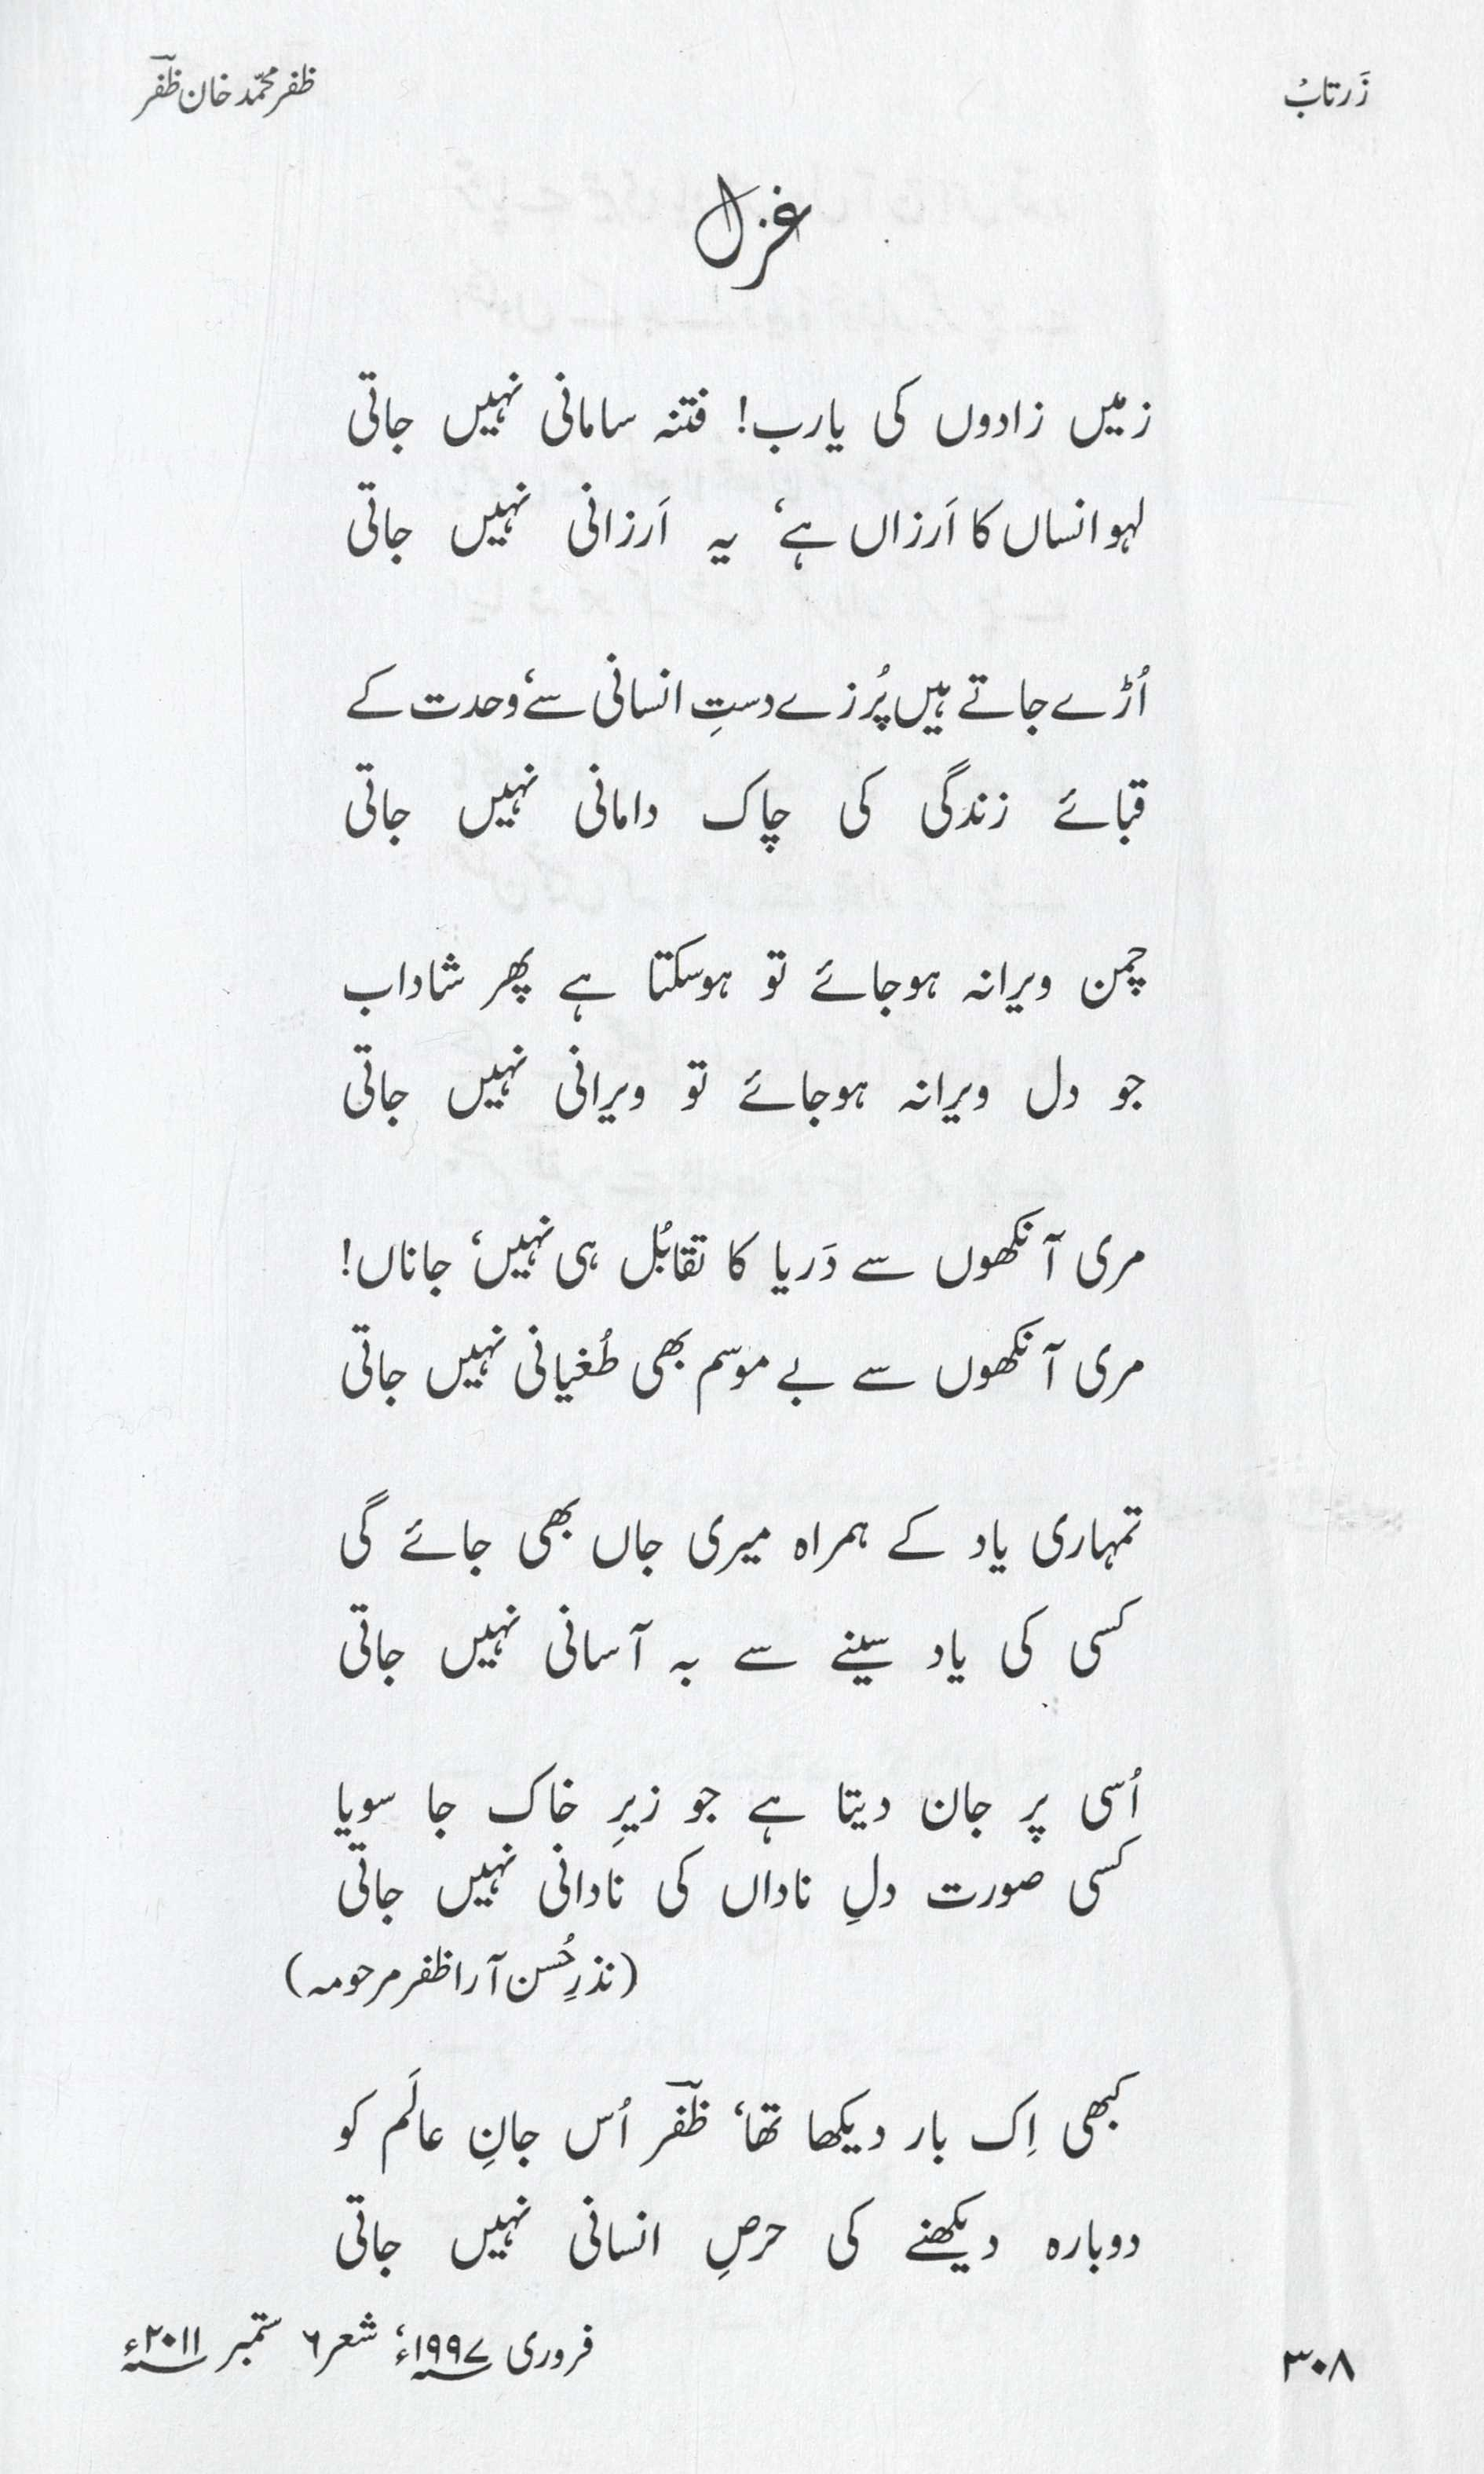 زَرتابُ
ظفر محمّد خان ظفؔر
غزل
زمیں زادوں کی یارب! فتنہ سامانی نہیں جاتی
لہو انساں کا اَرزاں ہے، یہ اَرزانی نہیں جاتی
اُڑے جاتے ہیں پُرزے دستِ انسانی سے، وحدت کے
قبائے زندگی کی چاک دامانی نہیں جاتی
چمن ویرانہ ہوجائے تو ہوسکتا ہے پھر شاداب
جو دل ویرانہ ہوجائے تو ویرانی نہیں جاتی
مری آنکھوں سے دَریا کا تقابُل ہی نہیں، جاناں!
مری آنکھوں سے بے موسم بھی طُغیانی نہیں جاتی
تمہاری یاد کے ہمراہ میری جاں بھی جائے گی
کسی کی یاد سینے سے بہ آسانی نہیں جاتی
اُسی پر جان دیتا ہے جو زیرِ خاک جا سویا
کسی صورت دلِ ناداں کی نادانی نہیں جاتی
(نذرِ حُسن آرا ظفر مرحومہ)
کبھی اِک بار دیکھا تھا، ظفؔر اُس جانِ عالَم کو
دوبارہ دیکھنے کی حرصِ انسانی نہیں جاتی
فروری ۱۹۹۷ء، شعر ۶ ستمبر ۲۰۱۱ء
۳۰۸